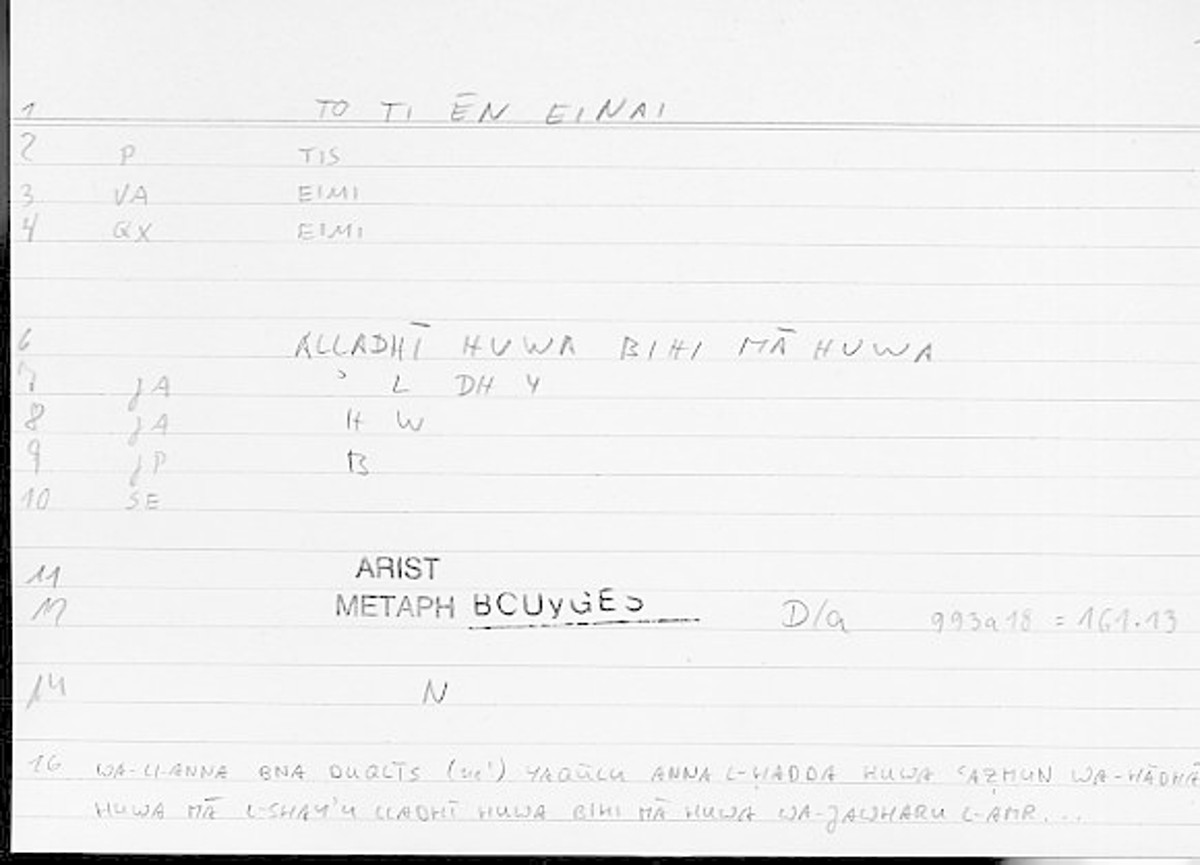 1 TO TI ĒN EINAI
2 P TIS
3 VA EIMI
4 QX EIMI
6 ALLADHĪ HUWA BIHI MĀ HUWA
7 JA ʾ L DH Y
8 JA H W
9 JP B
10 SE
11 ARIST
METAPH BOUYGES D/a 993a18 = 161.13
14 N
16 WA-LI-ANNA BNA DUQLĪS YAQŪLU ANNA L-ḤADDA HUWA ʿAẒMUN WA-HĀDHĀ
HUWA MĀ L-SHAYʾU LLADHĪ HUWA BIHI MĀ HUWA WA-JAWHARU L-AMR...